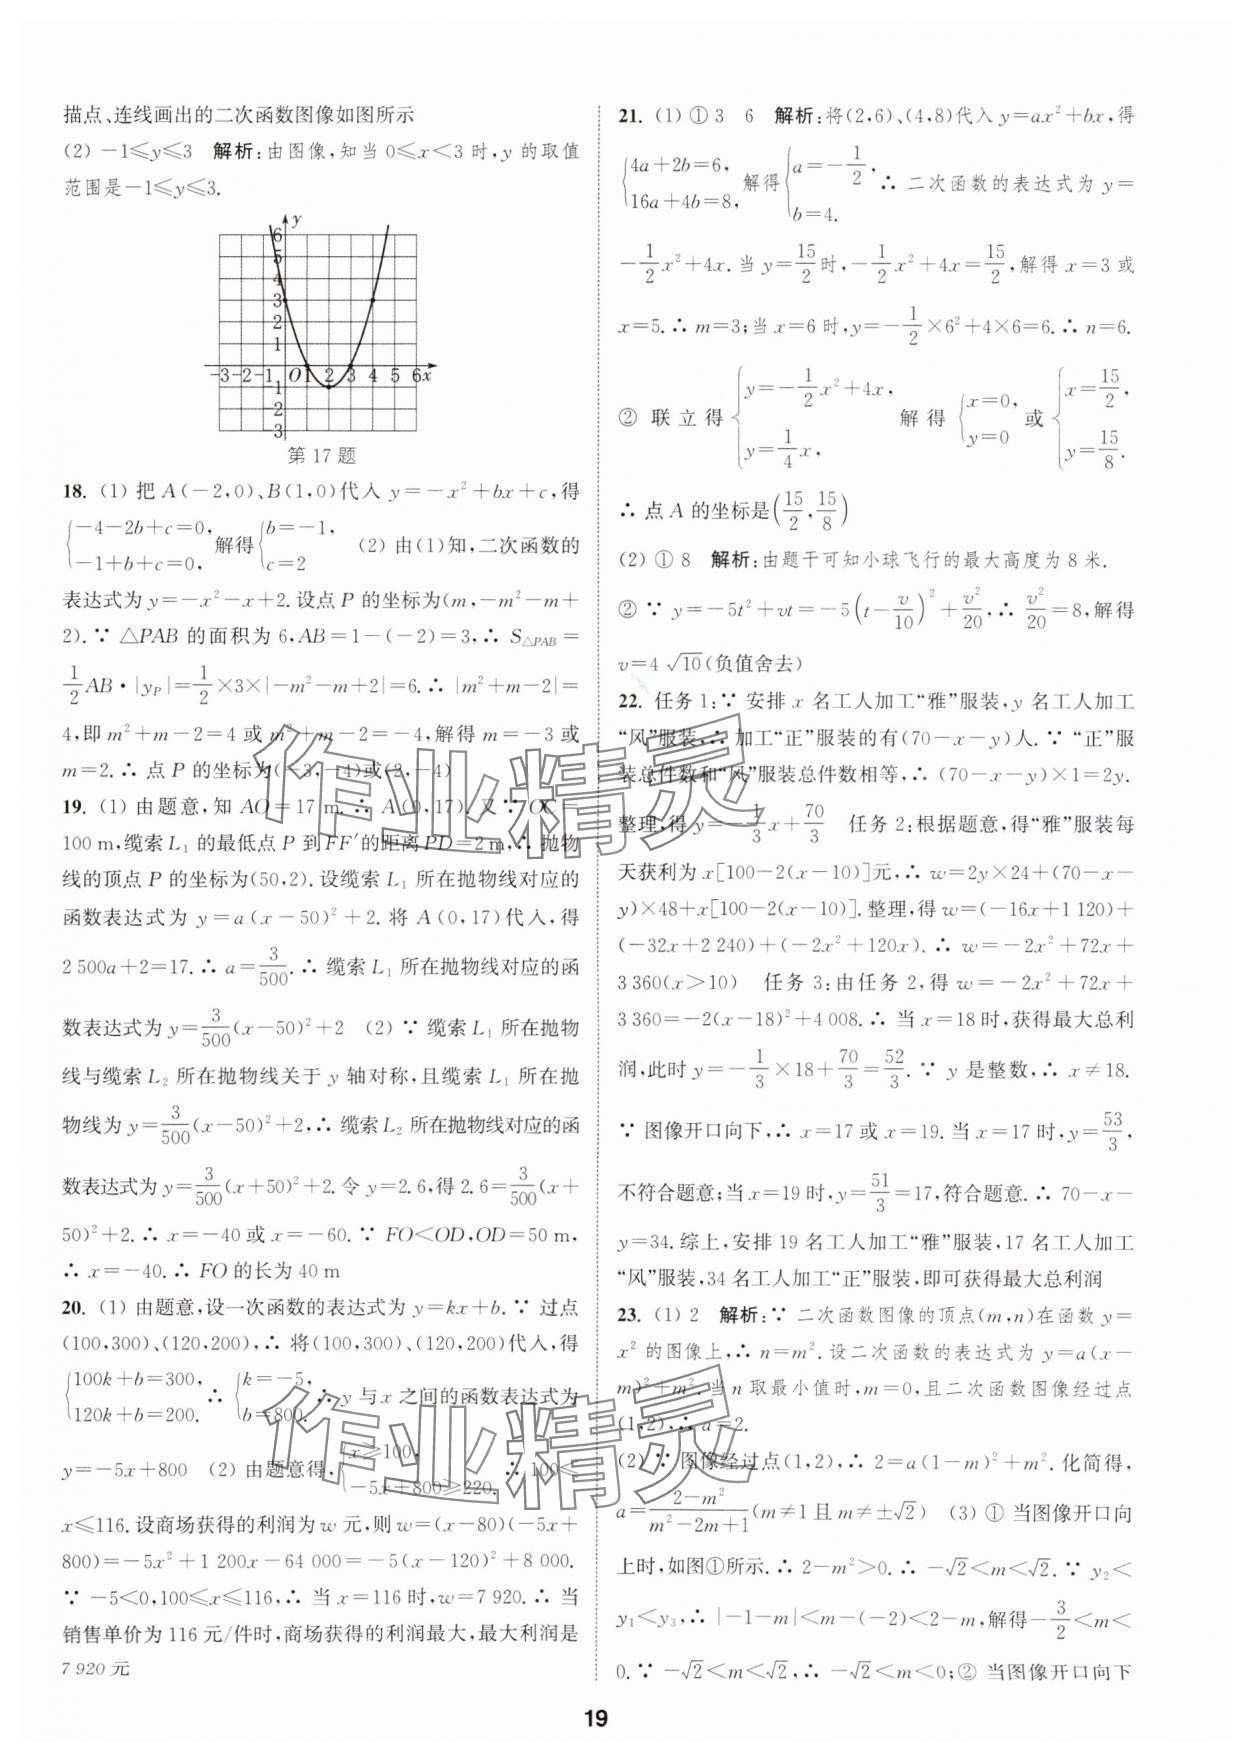 描点、连线画出的二次函数图像如图所示
(2) －1≤y≤3　解析:由图像,知当 0≤x＜3 时,y 的取值
范围是－1≤y≤3.
y
6
5
4
3
2
1
－3－2－1 O 1 2 3 4 5 6x
－1
－2
－3
第 17 题
18. (1) 把 A(－2,0)、B(1,0)代入 y＝－x²＋bx＋c,得
{－4－2b＋c＝0, －1＋b＋c＝0, 解得{b＝－1, c＝2　(2) 由(1)知,二次函数的
表达式为 y＝－x²－x＋2.设点 P 的坐标为(m,－m²－m＋
2).∵ △PAB 的面积为 6,AB＝1－(－2)＝3,∴ S△PAB＝
1/2 AB·|yP|＝1/2×3×|－m²－m＋2|＝6.∴ |m²＋m－2|＝
4,即 m²＋m－2＝4 或 m²＋m－2＝－4,解得 m＝－3 或
m＝2.∴ 点 P 的坐标为(－3,－4)或(2,－4)
19. (1) 由题意,知 AO＝17 m.∴ A(0,17).又∵ OC＝
100 m,缆索 L₁ 的最低点 P 到 FF′的距离 PD＝2 m,∴ 抛物
线的顶点 P 的坐标为(50,2).设缆索 L₁ 所在抛物线对应的
函数表达式为 y＝a(x－50)²＋2.将 A(0,17)代入,得
2 500a＋2＝17.∴ a＝3/500.∴ 缆索 L₁ 所在抛物线对应的函
数表达式为 y＝3/500(x－50)²＋2　(2) ∵ 缆索 L₁ 所在抛物
线与缆索 L₂ 所在抛物线关于 y 轴对称,且缆索 L₁ 所在抛
物线为 y＝3/500(x－50)²＋2,∴ 缆索 L₂ 所在抛物线对应的函
数表达式为 y＝3/500(x＋50)²＋2.令 y＝2.6,得 2.6＝3/500(x＋
50)²＋2.∴ x＝－40 或 x＝－60.∵ FO＜OD,OD＝50 m,
∴ x＝－40.∴ FO 的长为 40 m
20. (1) 由题意,设一次函数的表达式为 y＝kx＋b.∵ 过点
(100,300)、(120,200),∴ 将(100,300)、(120,200)代入,得
{100k＋b＝300, 120k＋b＝200. ∴ {k＝－5, b＝800. ∴ y 与 x 之间的函数表达式为
y＝－5x＋800　(2) 由题意得,{x≥100, －5x＋800≥220. ∴ 100≤
x≤116.设商场获得的利润为 w 元,则 w＝(x－80)(－5x＋
800)＝－5x²＋1 200x－64 000＝－5(x－120)²＋8 000.
∵ －5＜0,100≤x≤116,∴ 当 x＝116 时,w＝7 920.∴ 当
销售单价为 116 元/件时,商场获得的利润最大,最大利润是
7 920 元
21. (1) ① 3　6　解析:将(2,6)、(4,8)代入 y＝ax²＋bx,得
{4a＋2b＝6, 16a＋4b＝8, 解得{a＝－1/2, b＝4. ∴ 二次函数的表达式为 y＝
－1/2x²＋4x.当 y＝15/2时,－1/2x²＋4x＝15/2,解得 x＝3 或
x＝5.∴ m＝3;当 x＝6 时,y＝－1/2×6²＋4×6＝6.∴ n＝6.
② 联立得{y＝－1/2x²＋4x, y＝1/4x, 解得{x＝0, y＝0 或{x＝15/2, y＝15/8.
∴ 点 A 的坐标是(15/2,15/8)
(2) ① 8　解析:由题干可知小球飞行的最大高度为 8 米.
② ∵ y＝－5t²＋vt＝－5(t－v/10)²＋v²/20,∴ v²/20＝8,解得
v＝4√10(负值舍去)
22. 任务 1:∵ 安排 x 名工人加工“雅”服装,y 名工人加工
“风”服装,∴ 加工“正”服装的有(70－x－y)人.∵ “正”服
装总件数和“风”服装总件数相等,∴ (70－x－y)×1＝2y.
整理,得 y＝－1/3x＋70/3　任务 2:根据题意,得“雅”服装每
天获利为 x[100－2(x－10)]元,∴ w＝2y×24＋(70－x－
y)×48＋x[100－2(x－10)].整理,得 w＝(－16x＋1 120)＋
(－32x＋2 240)＋(－2x²＋120x).∴ w＝－2x²＋72x＋
3 360(x＞10)　任务 3:由任务 2,得 w＝－2x²＋72x＋
3 360＝－2(x－18)²＋4 008.∴ 当 x＝18 时,获得最大总利
润,此时 y＝－1/3×18＋70/3＝52/3.∵ y 是整数,∴ x≠18.
∵ 图像开口向下,∴ x＝17 或 x＝19.当 x＝17 时,y＝53/3,
不符合题意;当 x＝19 时,y＝51/3＝17,符合题意.∴ 70－x－
y＝34.综上,安排 19 名工人加工“雅”服装,17 名工人加工
“风”服装,34 名工人加工“正”服装,即可获得最大总利润
23. (1) 2　解析:∵ 二次函数图像的顶点(m,n)在函数 y＝
x² 的图像上,∴ n＝m².设二次函数的表达式为 y＝a(x－
m)²＋m².当 n 取最小值时,m＝0,且二次函数图像经过点
(1,2),∴ a＝2.
(2) ∵ 图像经过点(1,2),∴ 2＝a(1－m)²＋m².化简得,
a＝(2－m²)/(m²－2m＋1)(m≠1 且 m≠±√2)　(3) ① 当图像开口向
上时,如图①所示.∴ 2－m²＞0.∴ －√2＜m＜√2.∵ y₂＜
y₁＜y₃,∴ |－1－m|＜m－(－2)＜2－m,解得－3/2＜m＜
0.∵ －√2＜m＜√2,∴ －√2＜m＜0;② 当图像开口向下
作业精灵
作业精灵
19